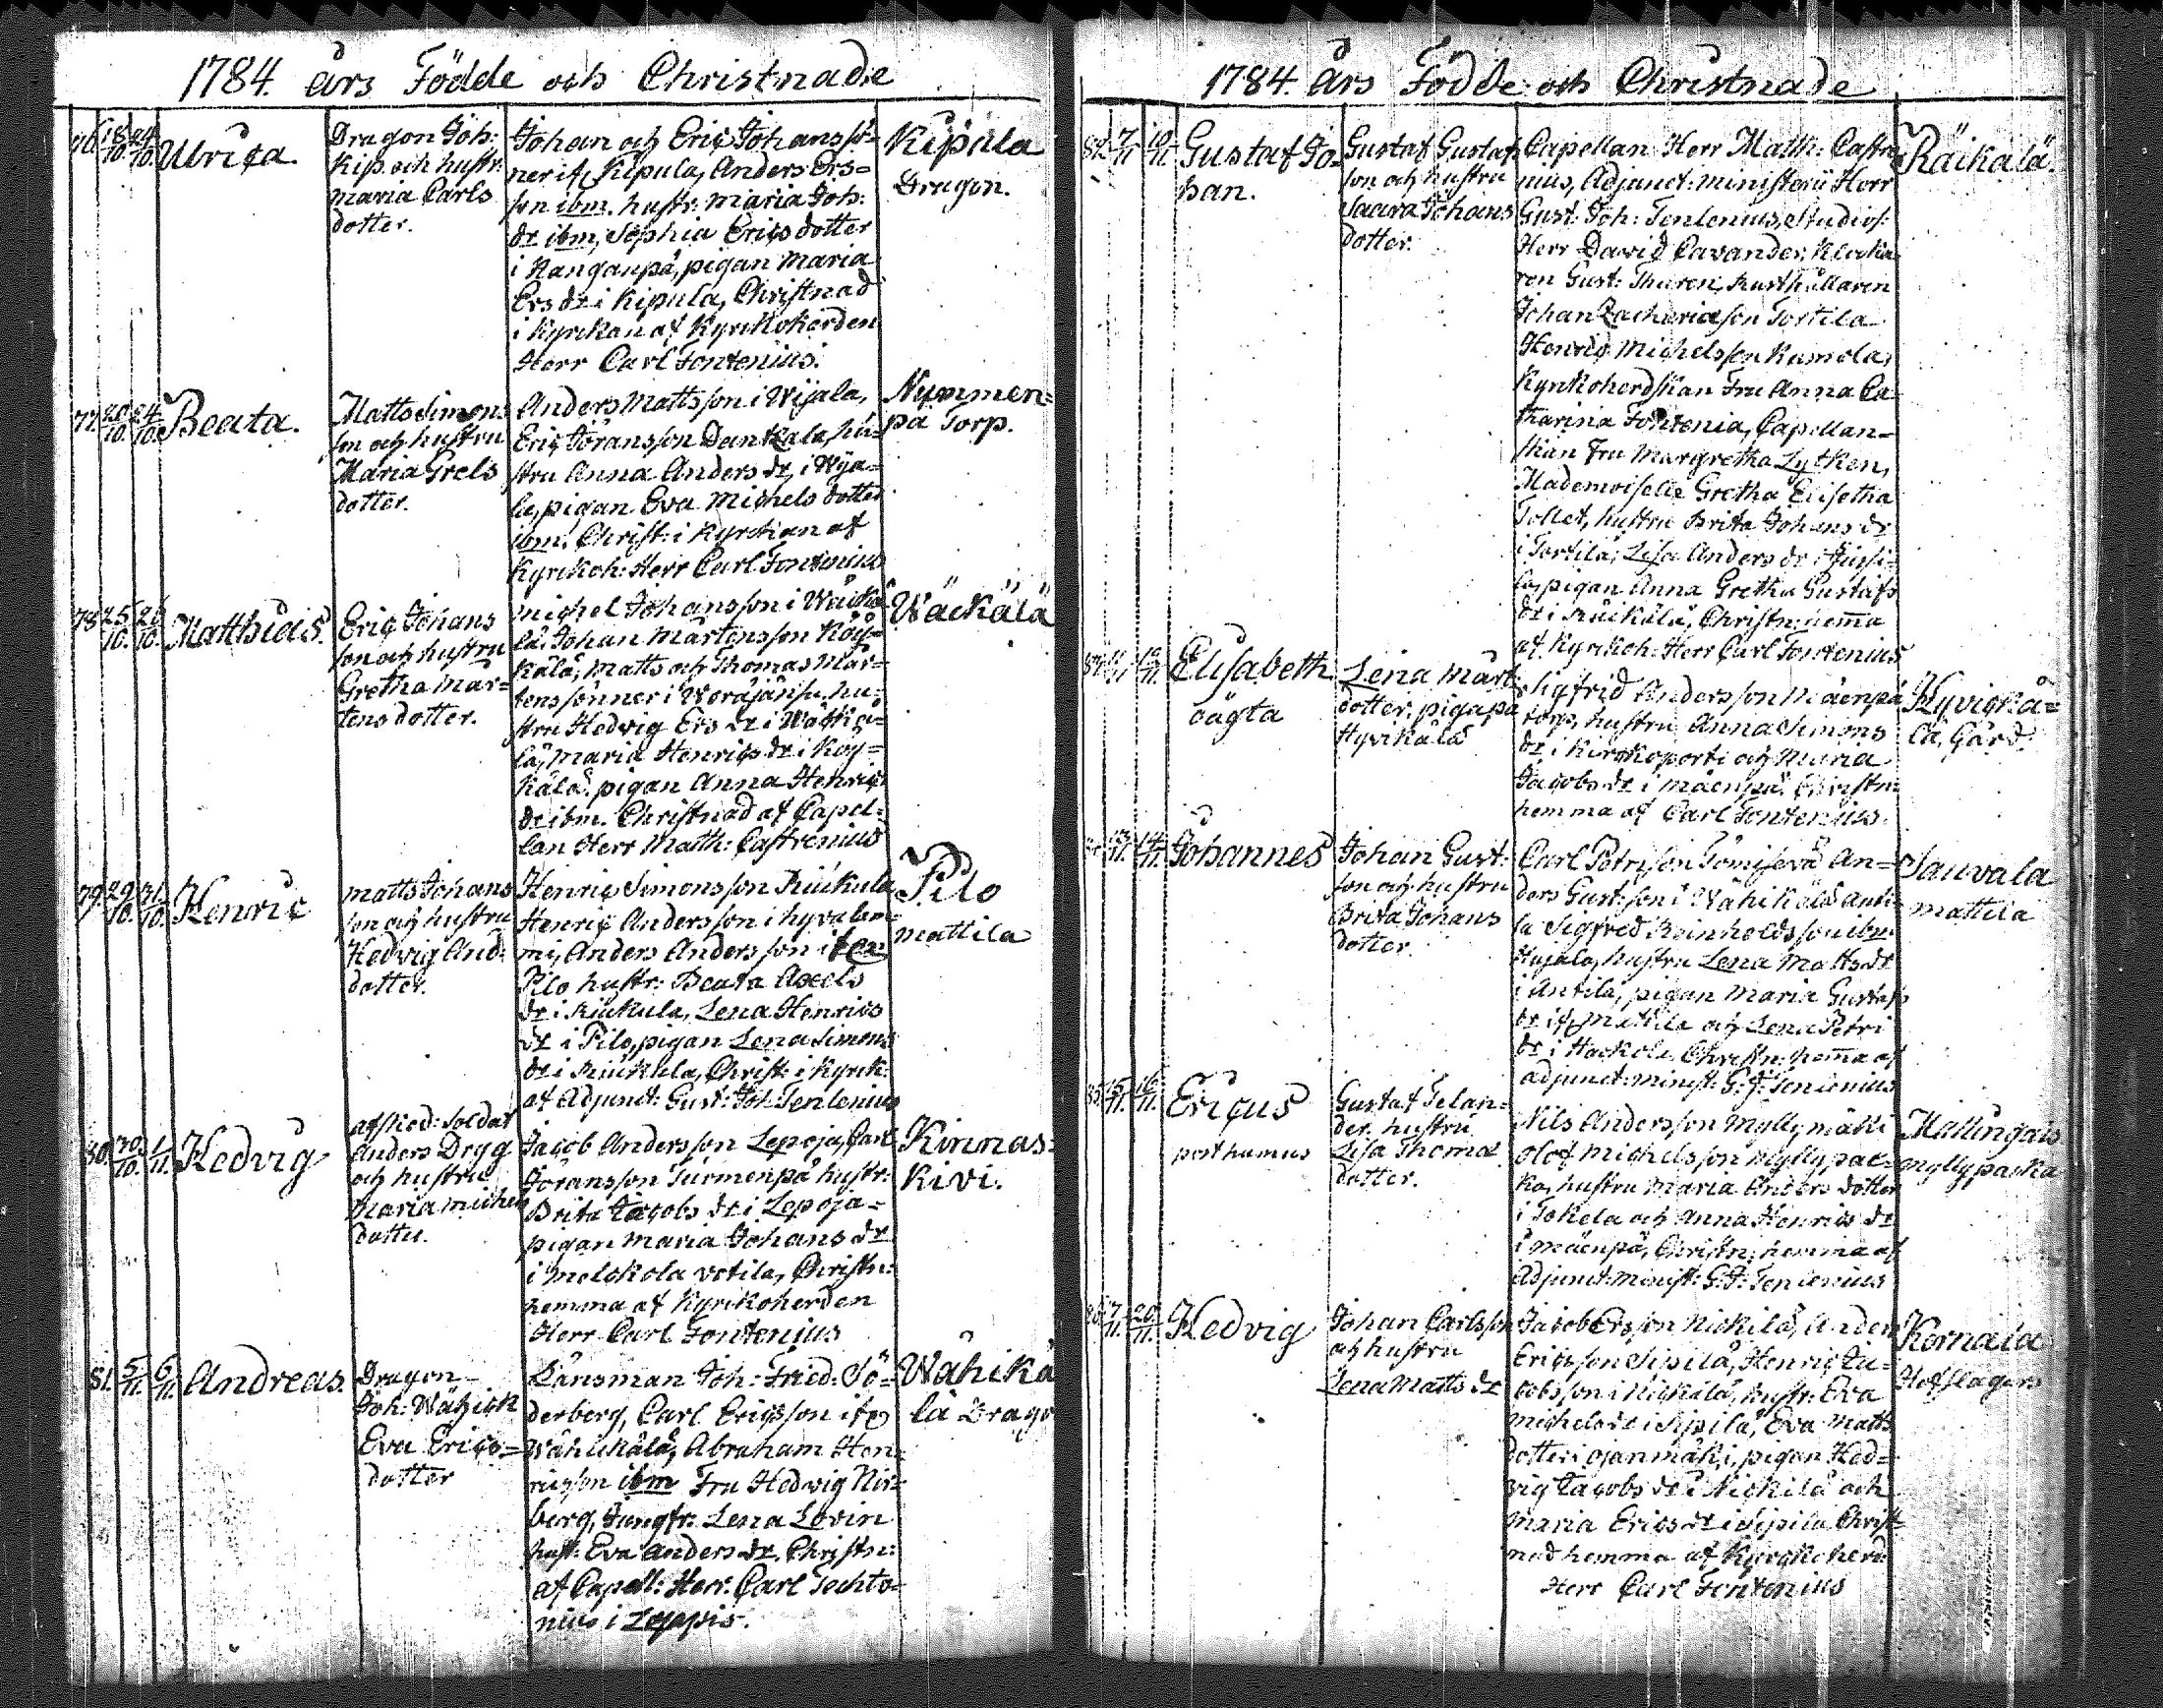 1784. års Födde och Christnade
76. 18/10. 24/10. Ulrica.
Dragon Joh:
Kip. och hustr:
Maria Carls
dotter.
Johan och Eric Johanssö=
ner if. Kipula, Anders Ers=
son ibm. hustr: Maria Joh:
dr ibm, Sophia Erics dotter
i Kanganpä, pigan Maria
Ers dr i Kipula, Christnad
i Kyrckan af Kyrckoherden
Herr Carl Fontenius.
Kipula
Dragon.
77. 20/10. 24/10. Beata.
Matts Simons
son och hustru
Maria Grels
dotter.
Anders Mattsson i Wijala,
Eric Jöransson Dankala, hu=
stru Anna Anders dr i Wija=
la, pigan Eva Michels dotter
ibm. Christ: i Kyrckan af
Kyrckoh: Herr Carl Fontenius
Nymmen=
pä Torp.
78 25/10. 26/10. Matthias.
Eric Johans
son och hustru
Gretha Mår=
tens dotter.
Michel Johansson i Wäckä
lä, Johan Mårtensson Köy=
kälä, Matts och Thomas Mår=
tenssönner i hu=
stru Hedvig Ers dr i
lä, Maria Henrics dr i Köy=
kälä, pigan Anna Henrics
dr ibm. Christnad af Capel=
lan Herr Matth: Castrenius
Wäckälä
79. 29/10. 31/10. Henric
Matts Johans
son och hustru
Hedvig And:
dotter.
Henric Simonsson Riukula
Henric Andersson i hyvalem=
mi, Anders Andersson i
Pilo hustr: Beata Axels
dr i Riukula, Lena Henrics
dr i Pilo, pigan Lena Simons
dr i Riukula, Christ: i Kyrck:
af Adjunct: Gust: Joh. Tenlenius
Pilo
mattila
80. 30/10. 1/11. Hedvig
afsked: Soldat
Anders Dryg
och hustru
Maria Michels
dotter.
Jacob Andersson Lepoja, Carl
Jöransson Turmenpä hustr:
Brita Jacobs dr i Lepoja=
pigan Maria Johans dr
i Melckola votila, Christn:
hemma af Kyrckoherden
Herr Carl Fontenius
Kinnas=
kivi.
81. 5/11. 6/11. Andreas.
Dragon
Joh: Wähick
Eva Erics=
dotter
Länsman Joh: Fried: Sö=
derberg, Carl Ericsson if
Wähikälä, Abraham Hen=
ricsson ibm Fru Hedvig Nir=
berg, Jungfr: Lena Lovin
hust: Eva Anders dr. Christn:
af Capell: Herr Carl Techto=
nius i Loppis.
Wähikä
lä Drago
1784. års Födde och Christnade
82. 7/11 10/11. Gustaf Jo=
han.
Gustaf Gustafs
son och hustru
Saara Johans
dotter.
Capellan Herr Matth: Castre
nius, Adjunct: Ministerii Herr
Gust: Joh: Tenlenius, Studios:
Herr David Cavander, Klocka
ren Gust: Thuren, Rusthållaren
Johan Zachariasson Tortila
Henric Michelsson Kumola,
Kyrckoherdskan Fru Anna Ca=
tharina Fontenia, Capellan=
skan Fru Margretha Lytken,
Mademoiselle Gretha Elisetha
Tollet, hustru Brita Johans dr
i Tortila, Lisa Anders dr i Jussi=
la, pigan Anna Gretha Gustafs
dr i Räikälä, Christn: hema
af Kyrckoh: Herr Carl Fontenius
Räikälä.
83. 11/11 12/11. Elisabeth
oägta
Lena Mårt:
dotter, piga på
Hyvikälä
Sigfrid Andersson Mäenpä
torp, hustru Anna Simons
dr i Kirckoporti och Maria
Jacobs dr i Mäenpä. Christn:
hemma af Carl Fontenius.
Hyvickä=
lä, Gård.
84. 13/11. 14/11. Johannes
Johan Gust:
son och hustru
Brita Johans
dotter.
Carl Petrsson Tömisevä An=
ders Gust:son i Wähikälä Anti=
la Sigfred Reinholdsson ibm.
Hujala, hustru Lena Matts dr
i Antila, pigan Maria Gustafs
dr if. Mattila och Lena Petri
dr i Hackola. Christn: hema af
adjunct: minist: G: J: Tenlenius
Sauvala
mattila
85. 15/11. 16/11. Ericus
posthumus
Gustaf Selan=
der. hustru
Lisa Thomæ
dotter.
Nils Andersson Myllymäki
Olof Michelsson Myllypac=
ka, hustru Maria Anders dotter
i Tokela och Anna Henrics dr
i Mäenpä, Christn: hemma af
Adjunct: Minist: G: J: Tenlenius
Mallingais
myllypacka
86. 17/11. 20/11. Hedvig
Johan Carlsson
och hustru
Lena Matts dr
Jacob Ersson Nickilä, Anders
Ericsson Sipilä, Henric Ja=
cobsson i Nickilä, hustr: Eva
Michels dr i Sipilä, Eva Matts
dotter i ojanmäki, pigan Hed=
vig Jacobs dr i Nickilä och
Maria Erics dr i Sipilä Christ=
nad hemma af Kyrckoherd:
Herr Carl Fontenius
Kornala
Hofslagars